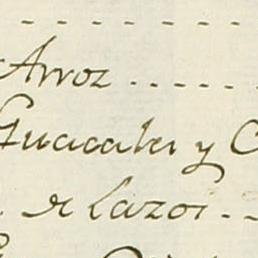 Arroz
Guacales y
de Lazos